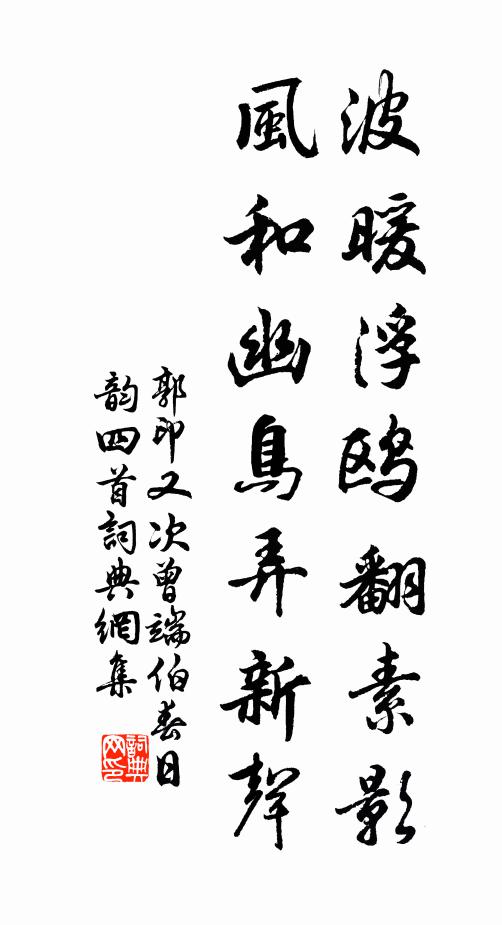 波暖浮鸥翻素影
風和幽鳥弄新聲
郭印又次曾端伯春日
韵四首詞典網集
詞典
网印